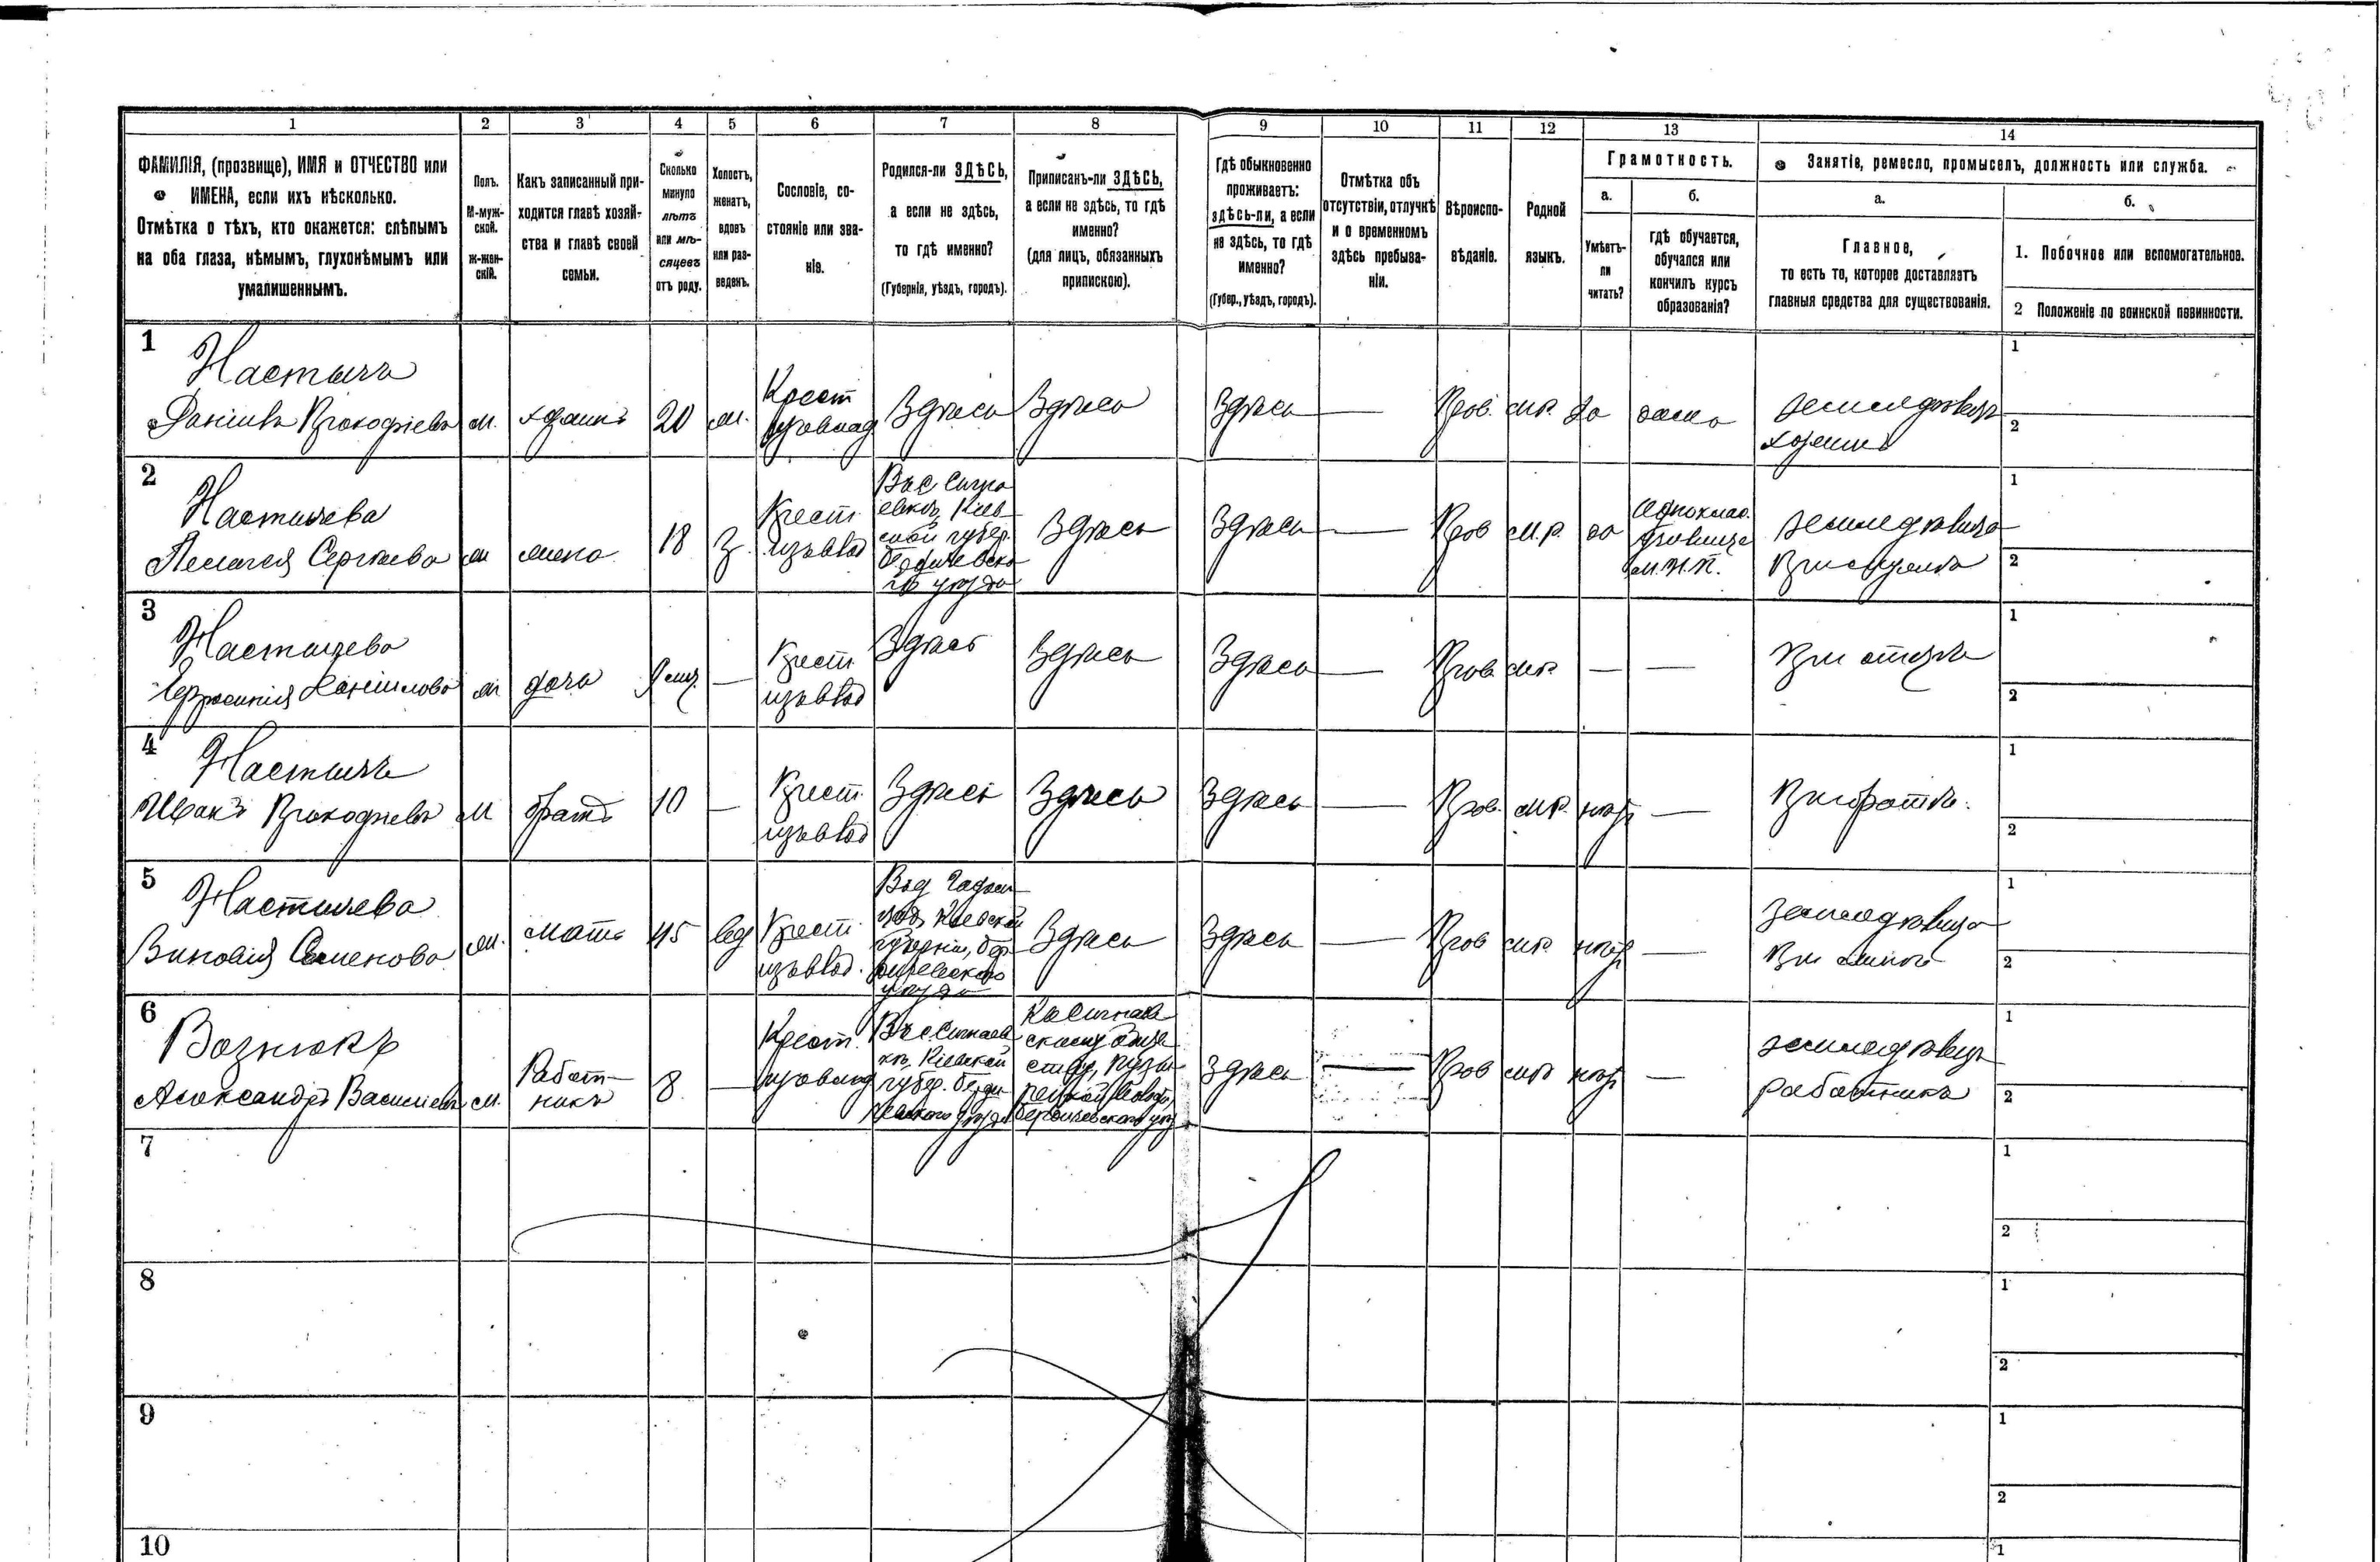 1 2 3 4 5 6 7 8 9 10 11 12 13 14
ФАМИЛІЯ, (прозвище), ИМЯ и ОТЧЕСТВО или
ИМЕНА, если ихъ нѣсколько.
Отмѣтка о тѣхъ, кто окажется: слѣпымъ
на оба глаза, нѣмымъ, глухонѣмымъ или
умалишеннымъ.
Полъ.
М-муж-
ской.
ж-жен-
скій.
Какъ записанный при-
ходится главѣ хозяй-
ства и главѣ своей
семьи.
Сколько
минуло
лѣтъ
или мѣ-
сяцевъ
отъ роду.
Холостъ,
женатъ,
вдовъ
или раз-
веденъ.
Сословіе, со-
стояніе или зва-
ніе.
Родился-ли ЗДѢСЬ,
а если не здѣсь,
то гдѣ именно?
(Губернія, уѣздъ, городъ).
Приписанъ-ли ЗДѢСЬ,
а если не здѣсь, то гдѣ
именно?
(для лицъ, обязанныхъ
припискою).
Гдѣ обыкновенно
проживаетъ:
здѣсь-ли, а если
не здѣсь, то гдѣ
именно?
(Губер., уѣздъ, городъ).
Отмѣтка объ
отсутствіи, отлучкѣ
и о временномъ
здѣсь пребыва-
ніи.
Вѣроиспо-
вѣданіе.
Родной
языкъ.
Грамотность.
а.
Умѣетъ-
ли
читать?
б.
гдѣ обучается,
обучался или
кончилъ курсъ
образованія?
Занятіе, ремесло, промыселъ, должность или служба.
а.
Главное,
то есть то, которое доставляетъ
главныя средства для существованія.
б.
1. Побочное или вспомогательное.
2 Положеніе по воинской повинности.
1
Настычъ
Даніилъ Прокофіевъ
м.
20
Крест
Здѣсь
Здѣсь
Здѣсь
Прав.
м.р.
да
дома
земледѣлецъ
хозяинъ
1
2
2
Настычева
Пелагея Сергѣева
жена
18
Крест.
изъ влад
Кіев
ской губер.
Бердичевска
го уѣзда
Здѣсь
Здѣсь
Прав
м.р.
да
Одноклас.
училище
М.Н.П.
1
2
3
Настычева
Ефросинія Даніилова
дочь
Крест.
изъ влад
Здѣсь
Здѣсь
Здѣсь
Прав.
м.р.
При отцѣ
1
2
4
Настычъ
Иванъ Прокофіевъ
м
братъ
10
Крест.
изъ влад
Здѣсь
Здѣсь
Здѣсь
Прав.
м.р.
нѣт
При братѣ.
1
2
5
Настычева
Зиновія Семенова
мать
45
вд
Крест.
изъ влад.
Кіевской
губерніи, бер
дичевскаго
уѣзда
Здѣсь
Здѣсь
Прав
м.р.
нѣт
При сынѣ
1
2
6
Вознюкъ
Александръ Василіевъ
м.
Работ-
никъ
8
Крест.
Кіевской
губер. берди
чевскаго уѣзда
Бердичевскаго уѣз
Здѣсь
Прав
м.р.
нѣт
земледѣлецъ
работникъ
1
2
7
1
2
8
1
2
9
1
2
10
1